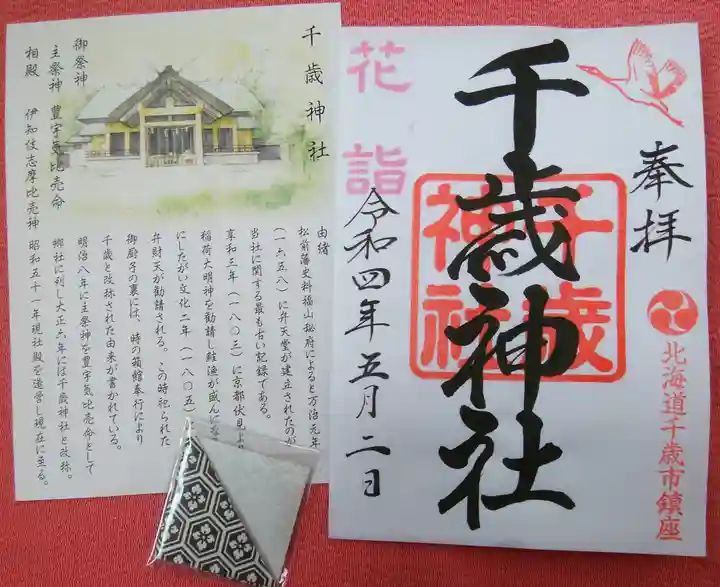 千歳神社
御祭神
主祭神 豊宇気比売命
相殿 伊知伎志摩比売神
由緒
松前藩史料福山秘府によると万治元年
(一六五八)に弁天堂が建立されたのが
当社に関する最も古い記録である。
享和三年(一八〇三)に京都伏見より
稲荷大明神を勧請し鮭漁が盛んにな
にしたがい文化二年(一八〇五)
弁財天が勧請される。この時祀られた
御厨子の裏には、時の箱館奉行により
千歳と改称された由来が書かれている。
明治八年に主祭神を豊宇気比売命として
郷社に列し大正六年には千歳神社と改称。
昭和五十一年現社殿を造営し現在に至る。
奉拝
北海道千歳市鎮座
千歳神社
千歳
神社
花詣
令和四年五月二日